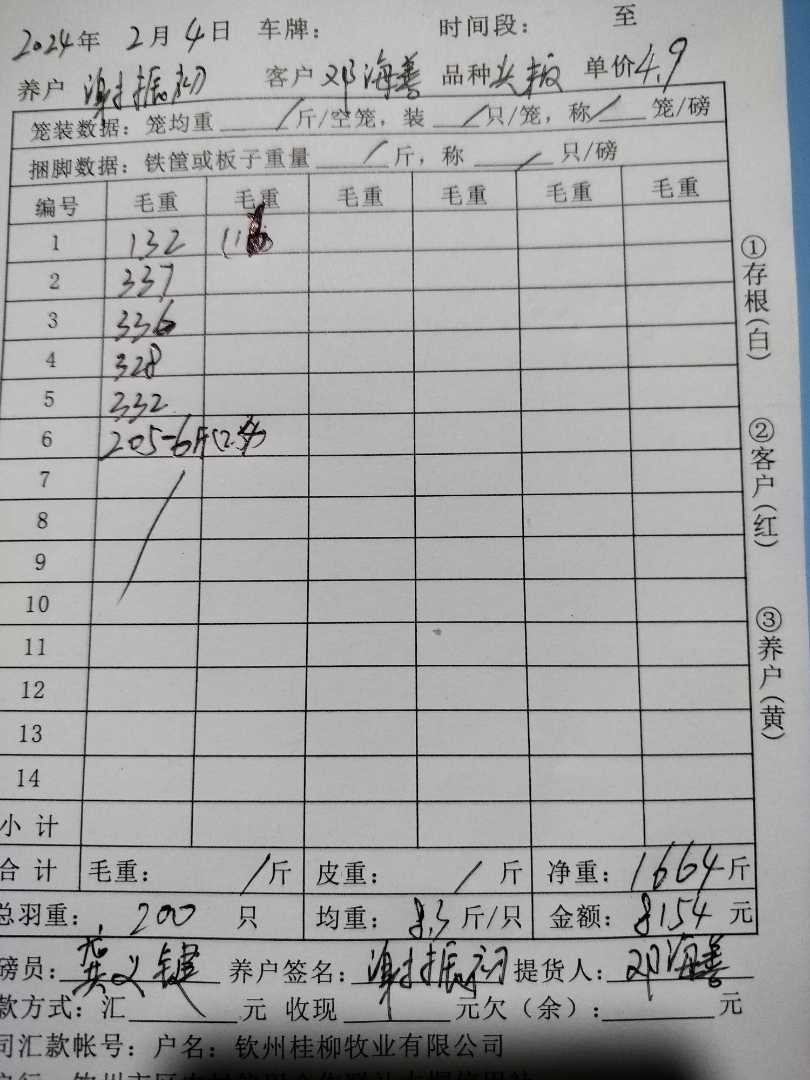 2024年 2月4日 车牌： 时间段： 至
养户 谢振初 客户 邓海善 品种 头板 单价4.9
笼装数据：笼均重 / 斤/空笼，装 / 只/笼，称 / 笼/磅
捆脚数据：铁筐或板子重量 / 斤，称 / 只/磅
编号 毛重 毛重 毛重 毛重 毛重 毛重
1 132
2 337
3 336
4 328
5 332
6 205-6斤
7
8
9
10
11
12
13
14
小计
合计 毛重： / 斤 皮重： / 斤 净重：1664斤
总羽重：200 只 均重：8.3斤/只 金额：8154元
磅员：龚义键 养户签名：谢振初 提货人：邓海善
款方式：汇 元 收现 元欠（余）： 元
司汇款帐号：户名：钦州桂柳牧业有限公司
①存根（白）
②客户（红）
③养户（黄）